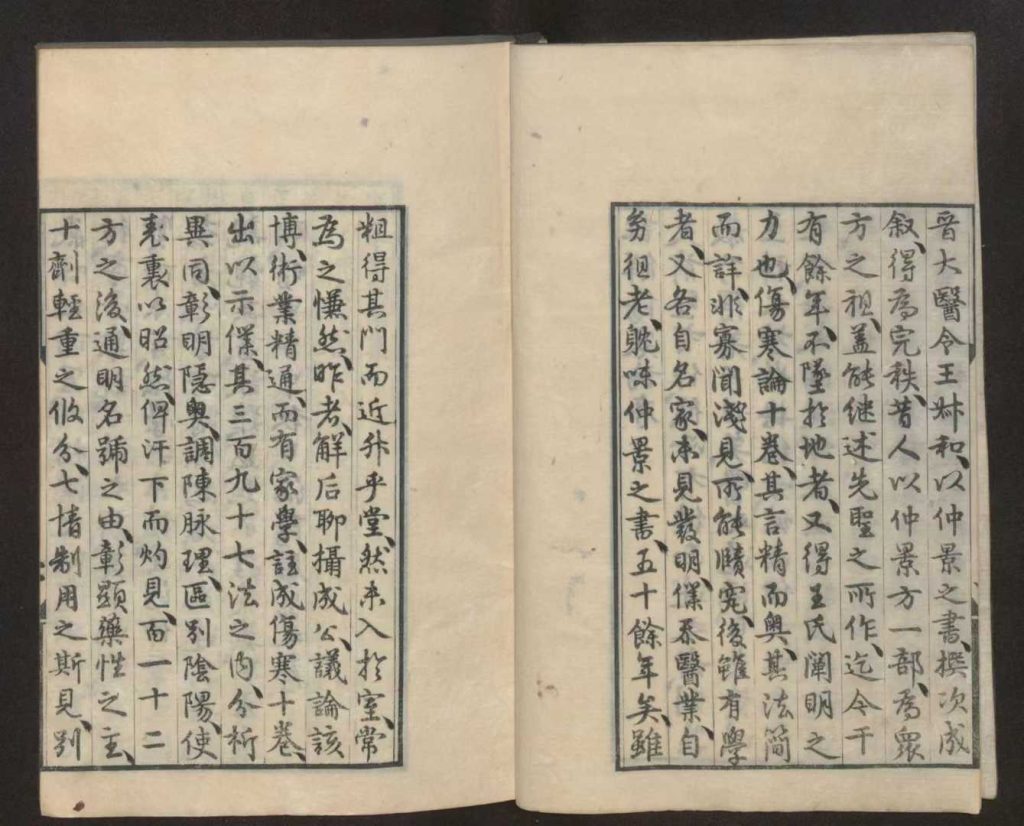 晉大醫令王叔和、以仲景之書、撰次成
叙、得為完秩、昔人以仲景方一部、為眾
方之祖、盖能继述先聖之所作、迄今千
有餘年、不墜扵地者、又得王氏闡明之
力也、傷寒論十卷、其言精而奧、其法簡
而詳、非寡聞淺見、所能賾究、後雖有學
者、又各自名家、未見發明、僕忝醫業、自
幼徂老、躭味仲景之書、五十餘年矣、雖
粗得其門而近升乎堂、然未入扵室、常
為之慊然、昨者、解后聊攝成公、議論該
博、術業精通、而有家學、註成傷寒十卷、
出以示僕、其三百九十七法之内、分析
異同、彰明隱奧、調陳脉理、區别陰陽、使
表裏以昭然、俾汗下而灼見、百一十二
方之後、通明名號之由、彰顯藥性之主、
十劑輕重之攸分、七情制用之斯見、别